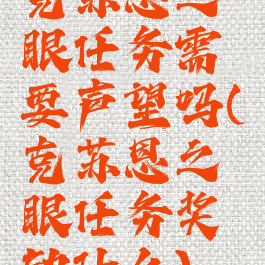 克苏恩之
眼任务需
要声望吗(
克苏恩之
眼任务奖